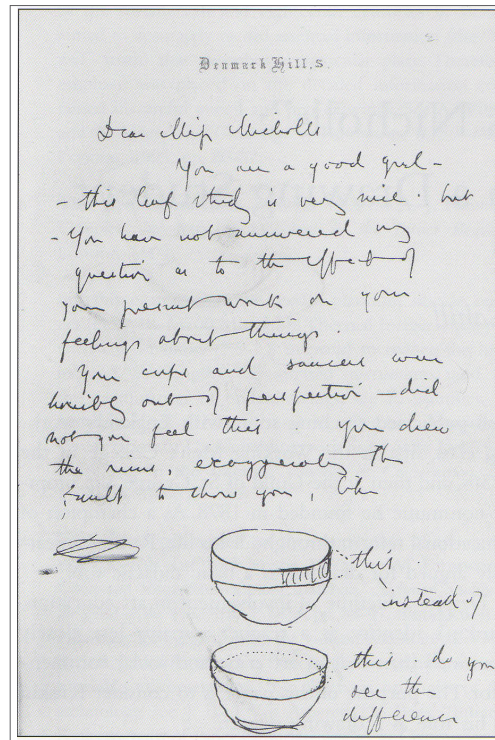 Denmark Hill, S.
Dear Miss Nicholls
You are a good girl -
- this leaf study is very nice . but
- You have not answered my
question as to the effect of
your present work on your
feelings about things.
Your cups and saucers were
horribly out of perspective - did
not you feel this You drew
the rims, exaggerating the
fault to show you, like
this
instead of
this do you
see the
difference